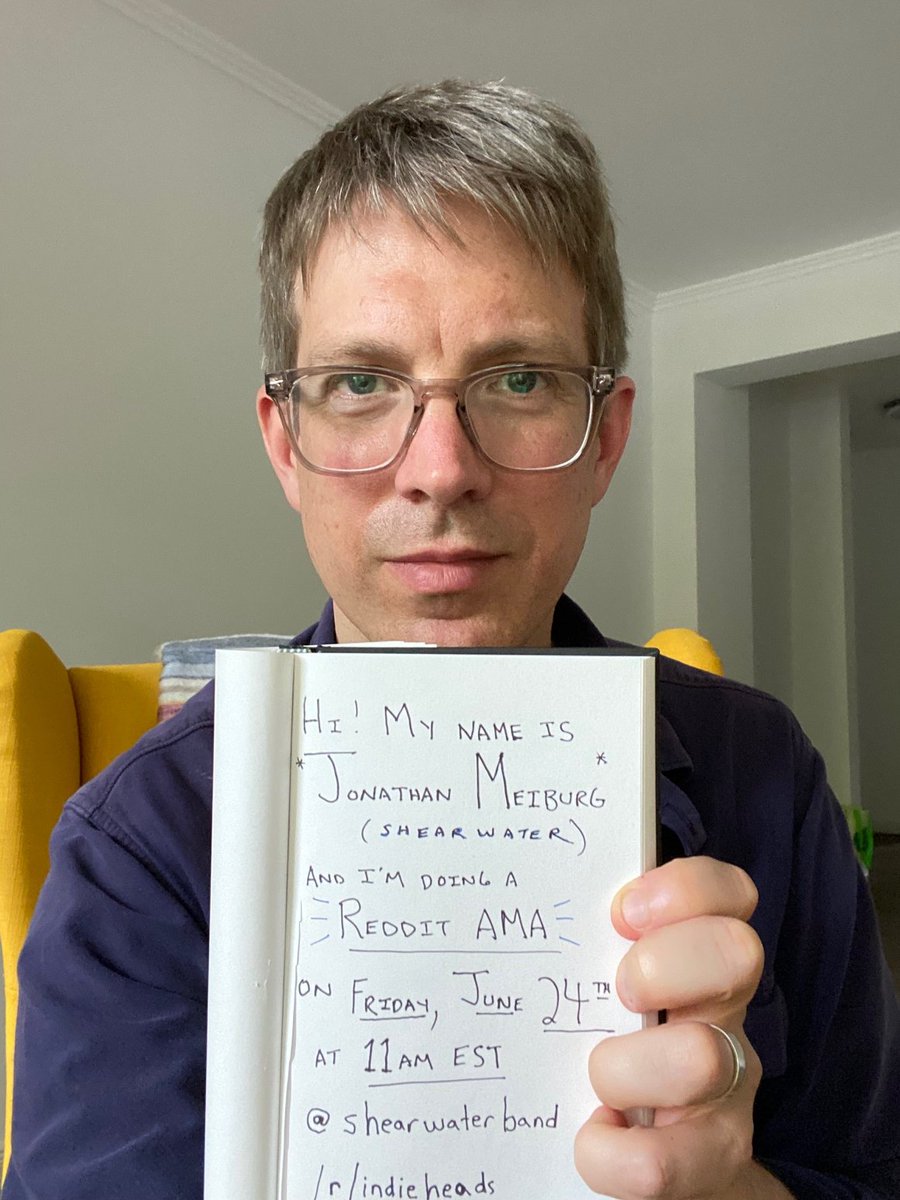 Hi! My name is
*Jonathan Meiburg*
(Shearwater)
and I'm doing a
Reddit AMA
on Friday, June 24th
at 11am EST
@shearwaterband
/r/indieheads